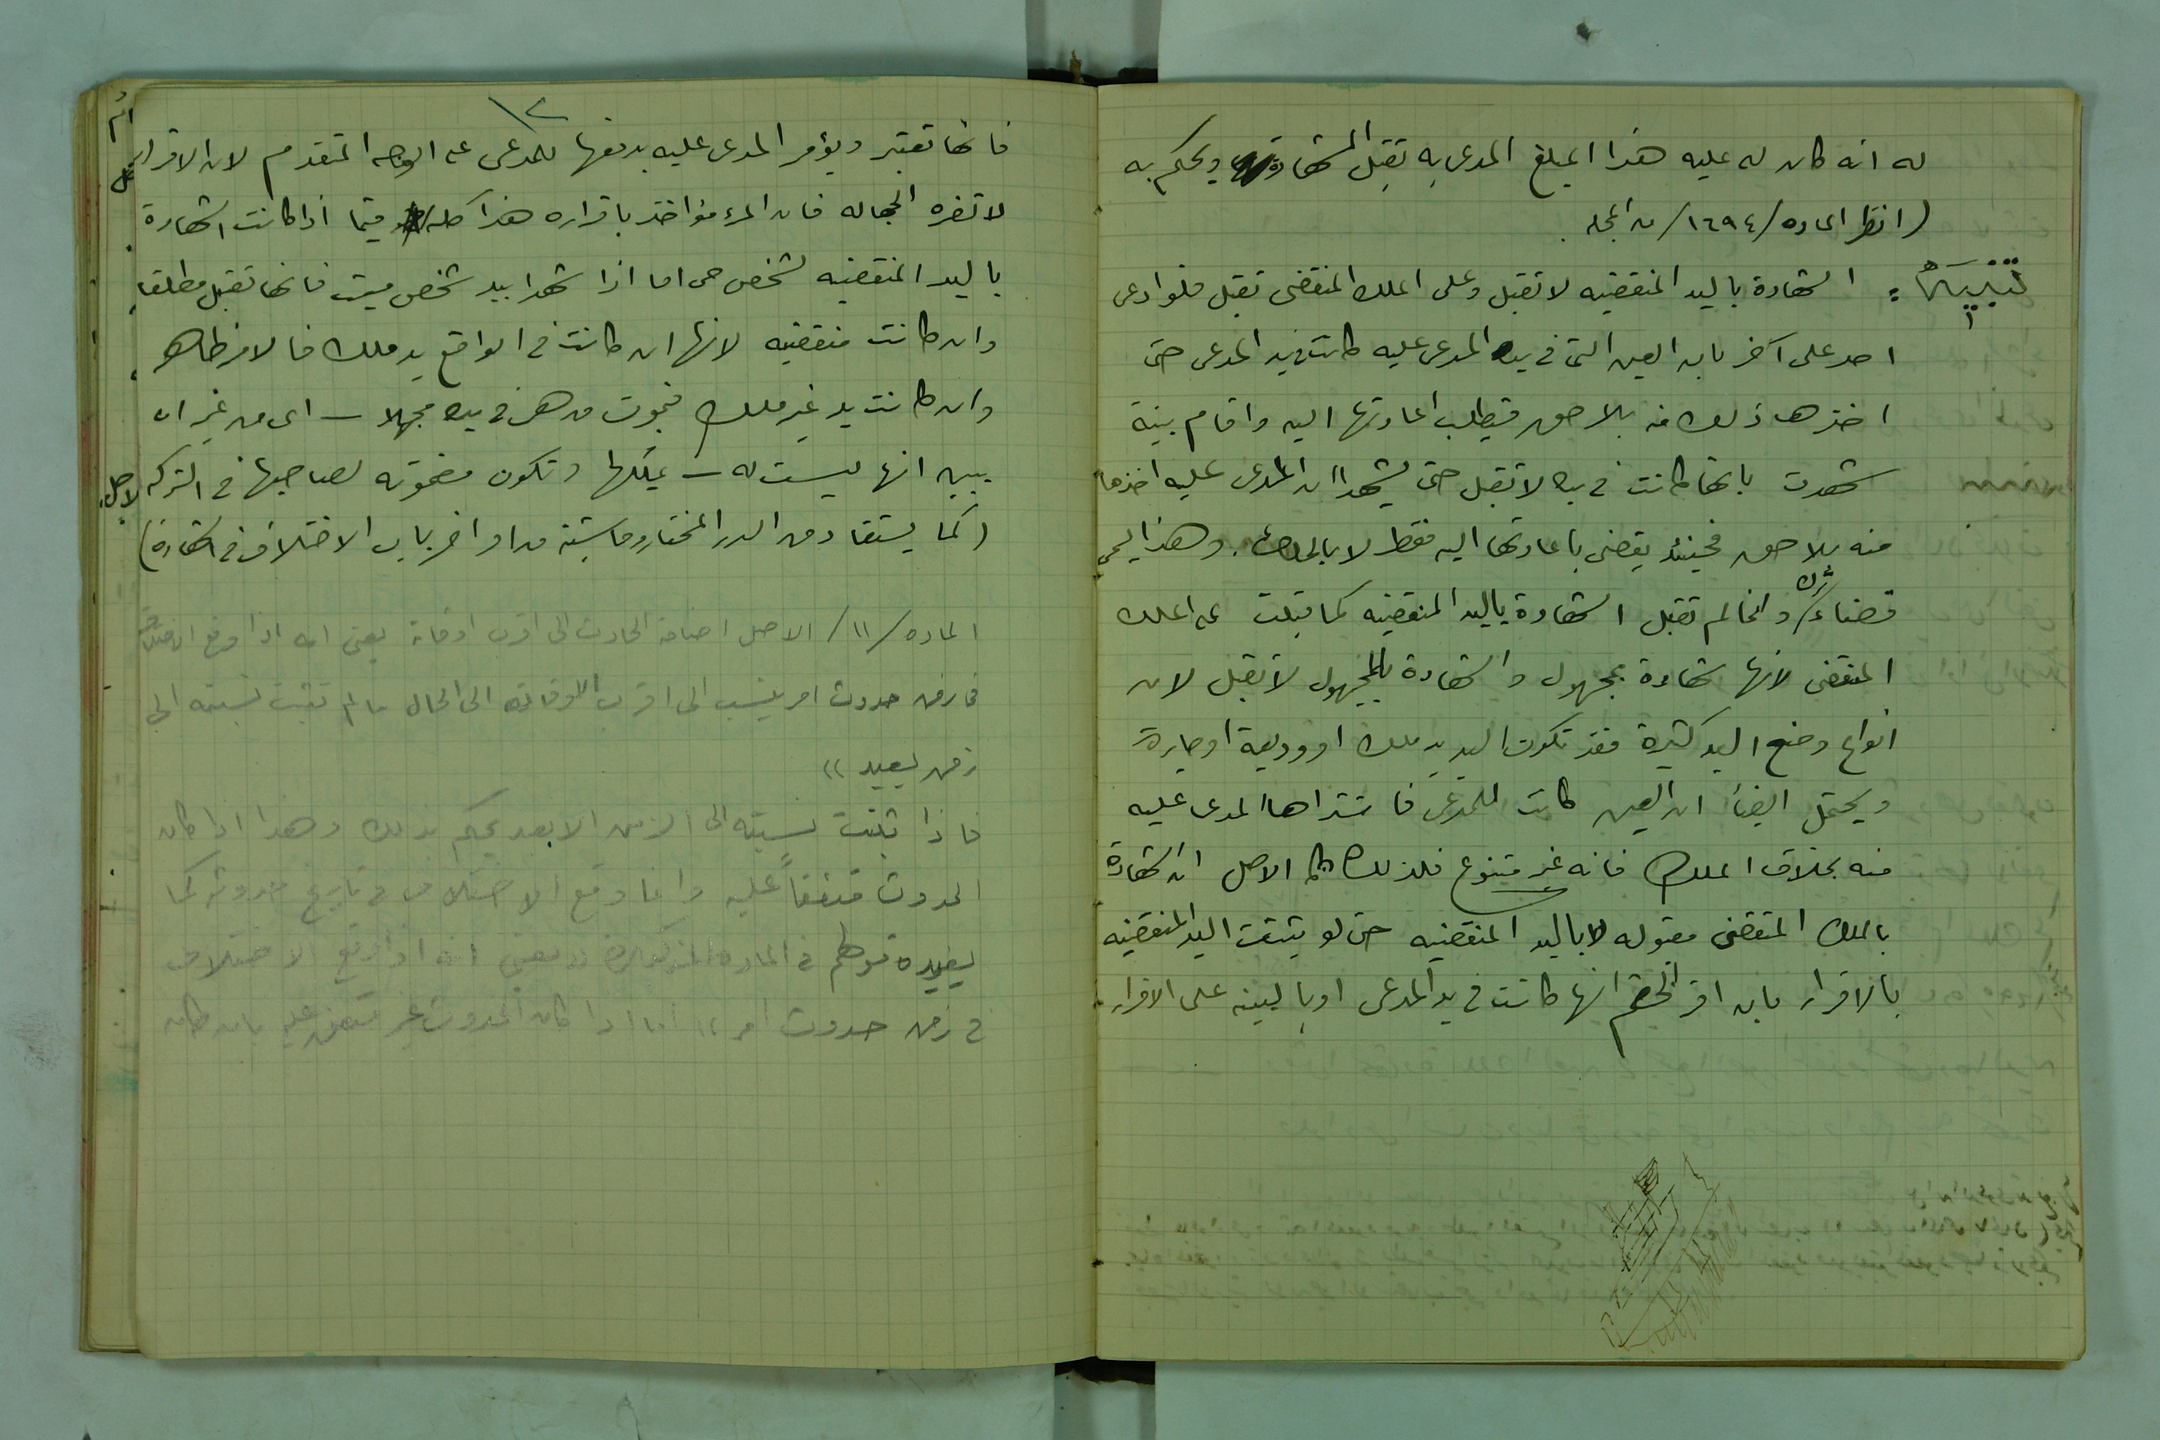 له انه كان له عليه هذا المبلغ المدعى به تقبل الشهادة ويحكم به
(انظر الماده /١٦٩٤/ من المجله.
تنبيه: الشهادة باليد المنقضيه لا تقبل وعلى الملك المنقضي تقبل فلو ادعى
احد على آخر بان العين التي في يد المدعى عليه كانت في يد المدعي حتى
اخذها ذلك منه بلا حق فيطلب اعادتها اليه واقام بينة
شهدت بانها كانت في يده لا تقبل حتى يشهدا ان المدعى عليه اخذها
منه بلا حق فحينئذ يقضى باعادتها اليه فقط لا بالملك. وهذا يسمى
قضاء ترك وانما لم تقبل الشهادة باليد المنقضيه كما قبلت على الملك
المنقضي لانها شهادة بمجهول والشهادة بالمجهول لا تقبل لان
انواع وضع اليد كثيرة فقد تكون اليد يد ملك او وديعة او اجارة
ويحتمل ايضا ان العين كانت للمدعي فاشتراها المدعى عليه
منه بخلاف الملك فانه غير متنوع فلذلك الاصل ان الشهادة
بالملك المنقضي مقبوله لا باليد المنقضيه حتى لو ثبتت اليد المنقضيه
بالاقرار بان اقر الخصم انها كانت في يد المدعي او بالبينه على الاقرار
١٢
فانها تعتبر ويؤمر المدعى عليه بدفعها للمدعي على الوجه المتقدم لان الاقرار
لا تضره الجهاله فان المرء مؤاخذ باقراره هذا كله فيما اذا كانت الشهادة
باليد المنقضيه لشخص حي اما اذا شهدا بيد شخص ميت فانها تقبل مطلقا
وان كانت منقضيه لانها ان كانت في الواقع يد ملك فالامر ظاهر
وان كانت يد غير ملك فبموت من هي في يده مجهلا – اي من غير ان
يبين انها ليست له – يملكها وتكون مضمونه لصاحبها في التركه
(كما يستفاد من الدر المختار وحاشيته من اواخر باب الاختلاف في الشهادة)
الماده /١١/ الاصل اضافة الحادث الى اقرب اوقاته يعني انه اذا وقع الاختلاف
في زمن حدوث امر ينسب الى اقرب الاوقات الى الحال ما لم تثبت نسبته الى
زمن بعيد))
فاذا ثبتت نسبته الى الزمن الابعد يحكم بذلك وهذا اذا كان
الحدوث متفقاً عليه وانما وقع الاختلاف في تاريخ حدوثه كما
يفيده قولهم في الماده المذكورة ((يعني انه اذا وقع الاختلاف
في زمن حدوث امر)) اما اذا كان الحدوث غير متفق عليه بان كان